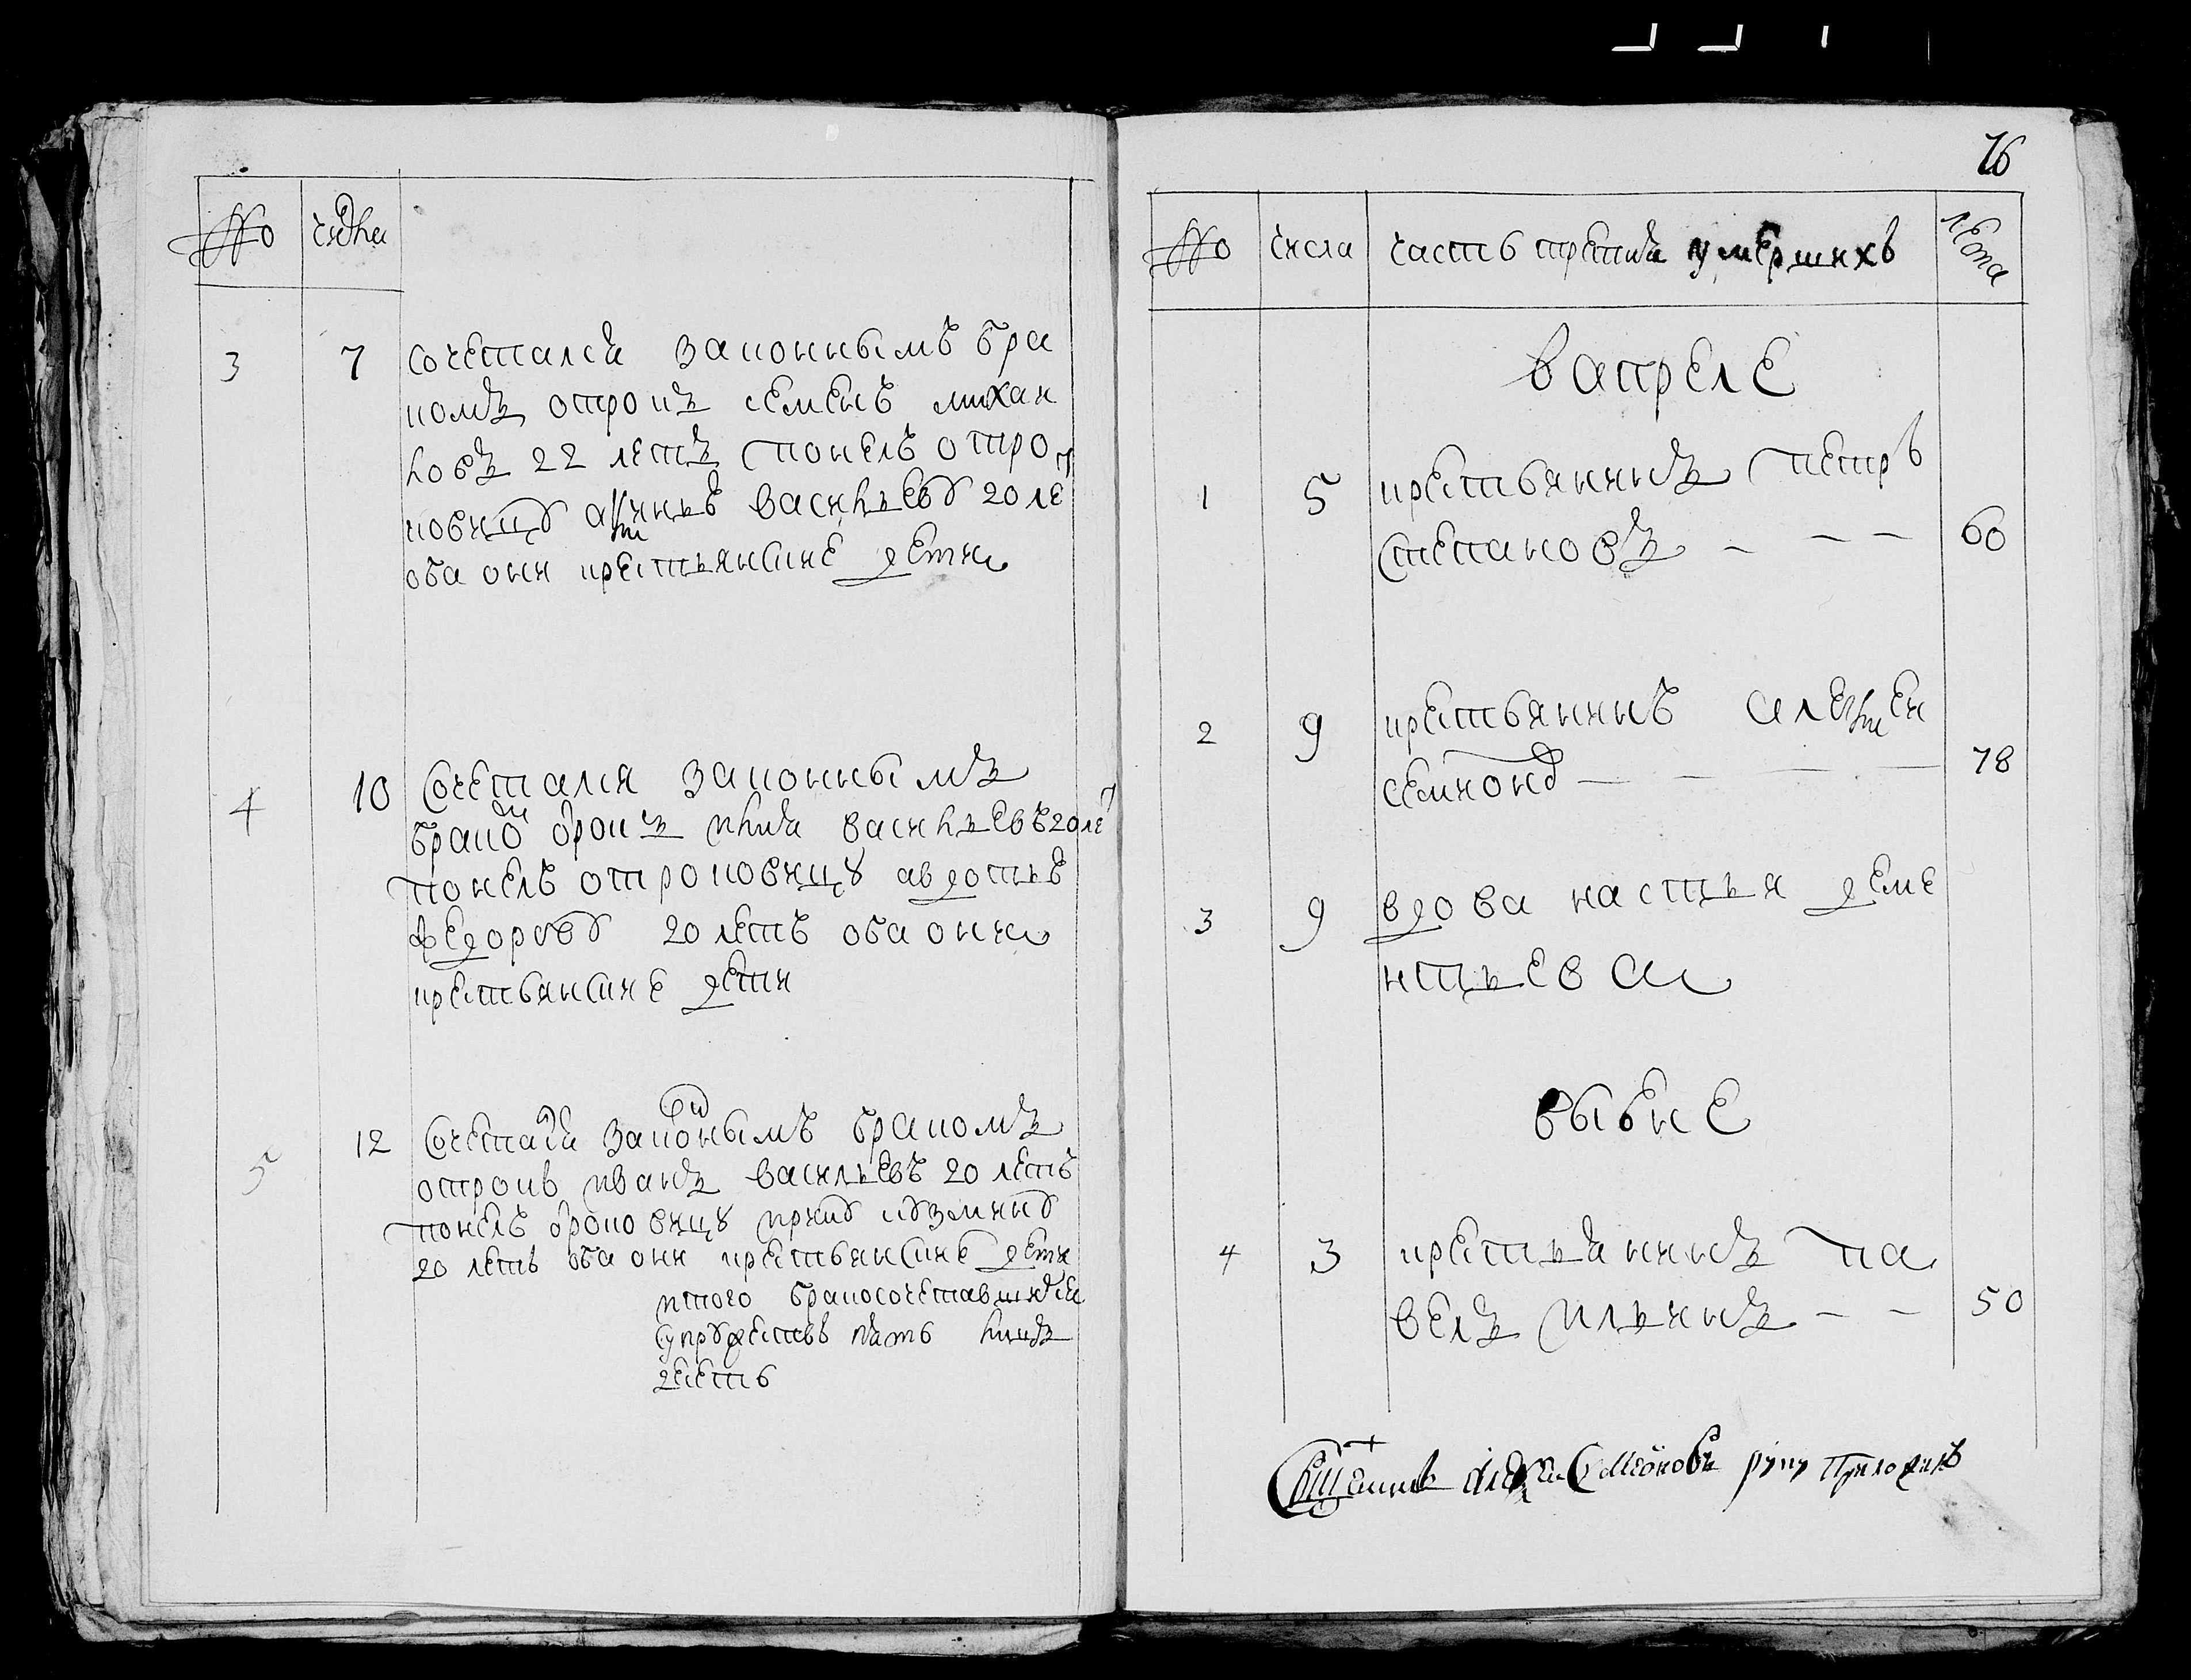 № числа
3 7 сочетался законнымъ бра
комъ отрокъ семенъ михаи
ловъ 22 летъ понелъ отро
ковицу аксинью васильеву 20 ле
оба они крестьянские дети
4 10 Сочетался законнымъ
брако отрокъ илья васильевъ 20 ле
понелъ отроковицу авдотью
федорову 20 летъ оба они
крестьянские дети
5 12 Сочетался законымъ бракомъ
отрокъ иванъ васильевъ 20 летъ
понелъ отроковицу ирину кузмину
20 летъ оба они крестьянские дети
итого бракосочетавшихся
супружествъ пять лицъ
десеть
76
№ числа часть третия умершихъ лета
в апреле
1 5 крестьянинъ петръ
степановъ — — — 60
2 9 крестьянинъ алексеи
семионов — — — — 78
3 9 вдова настья деме
нтьева
в ыюне
4 3 крестьянинъ па
велъ ильинъ — — 50
Священникъ алексеи Симеоновъ руку приложилъ